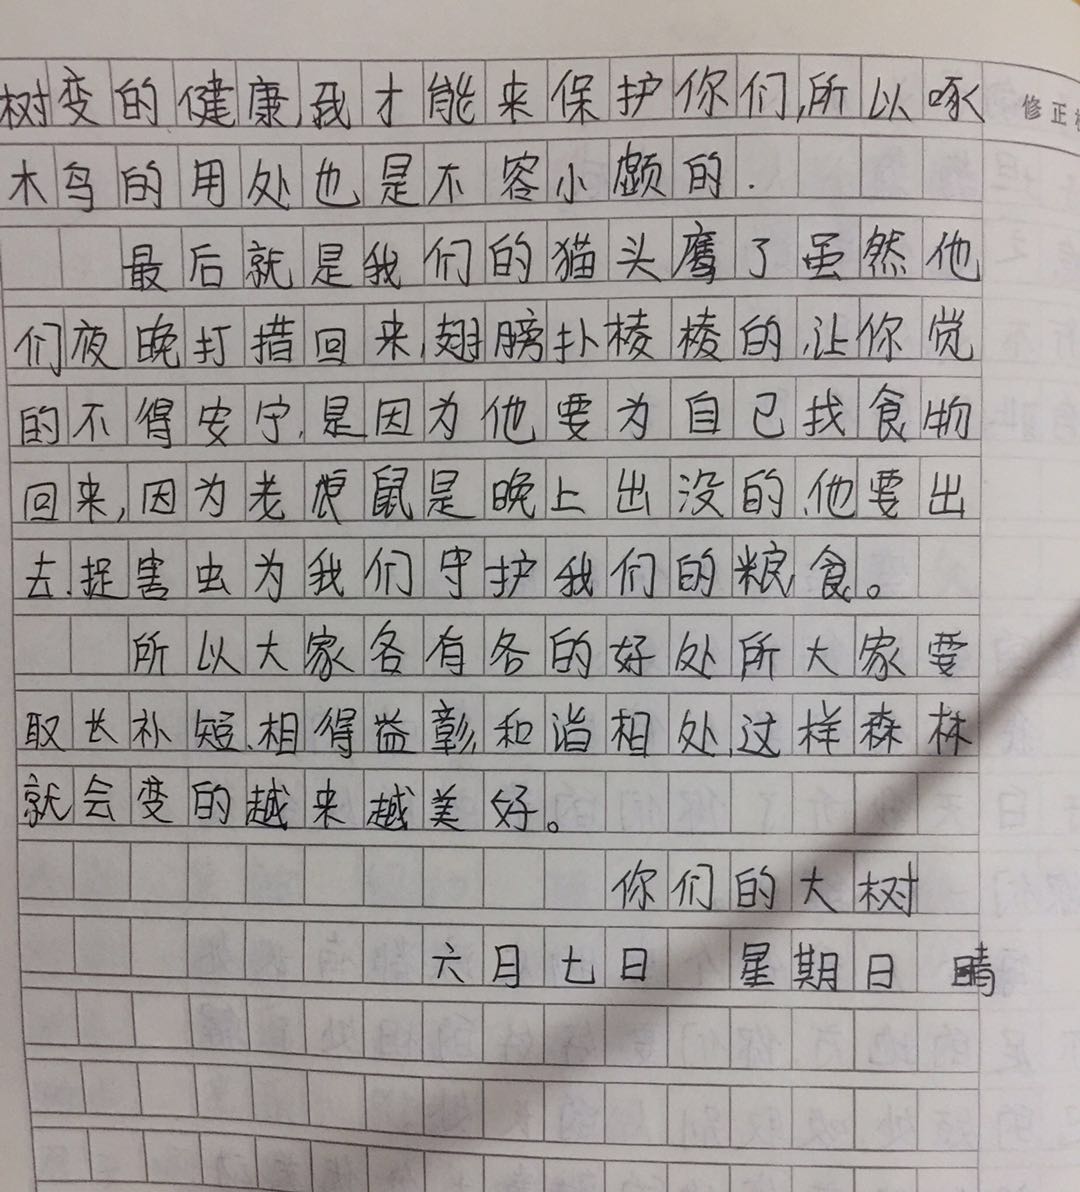 树变的健康,我才能来保护你们,所以啄
修正
木鸟的用处也是不容小颇的.
最后就是我们的猫头鹰了虽然他
们夜晚打措回来,翅膀扑棱棱的,让你觉
的不得安宁,是因为他要为自己找食物
回来,因为老鼠是晚上出没的,他要出
去,捉害虫为我们守护我们的粮食。
所以大家各有各的好处所大家要
取长补短,相得益彰,和谐相处这样森林
就会变的越来越美好。
你们的大树
六月七日 星期日 晴